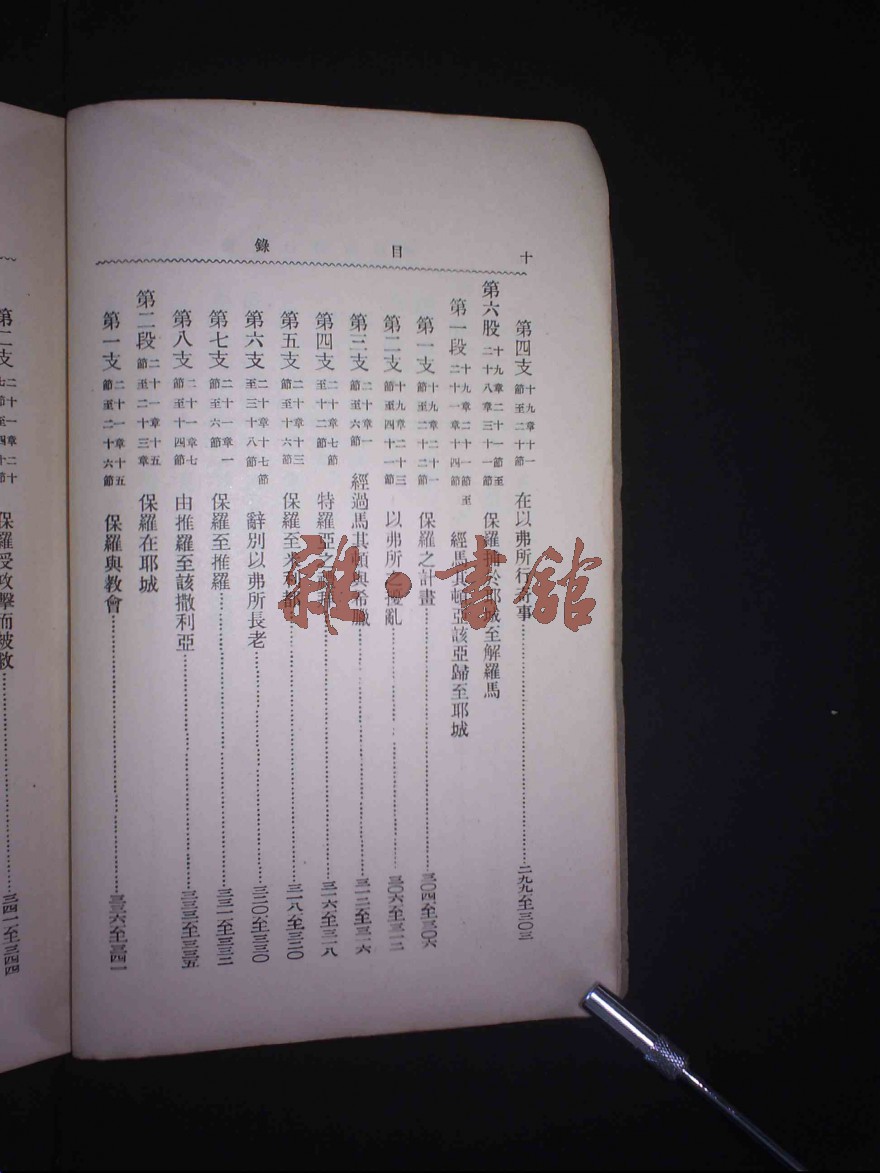 十 目 錄
第四支 十九章十一節至二十節 在以弗所行事 二九九至三〇三
第六股 十九章二十一節至二十八章三十一節 保羅 耶城至解羅馬
第一段 十九章二十一節至二十一章十四節 經馬其頓亞該亞歸至耶城
第一支 十九章二十一節至二十二節 保羅之計畫 三〇四至三〇六
第二支 十九章二十三節至四十一節 以弗所之擾亂 三〇六至三一二
第三支 二十章一節至六節 經過馬其頓與希臘 三一二至三一六
第四支 二十章七節至十二節 特羅亞之 三一六至三一八
第五支 二十章十三節至十六節 保羅至米利都 三一八至三二〇
第六支 二十章十七節至三十八節 辭別以弗所長老 三二〇至三三〇
第七支 二十一章一節至六節 保羅至推羅 三三一至三三二
第八支 二十一章七節至十四節 由推羅至該撒利亞 三三三至三三五
第二段 二十一章十五節至二十三章 保羅在耶城
第一支 二十一章十五節至二十六節 保羅與教會 三三六至三四一
第二支 保羅受攻擊而被救 三四一至三四四
雜·書館